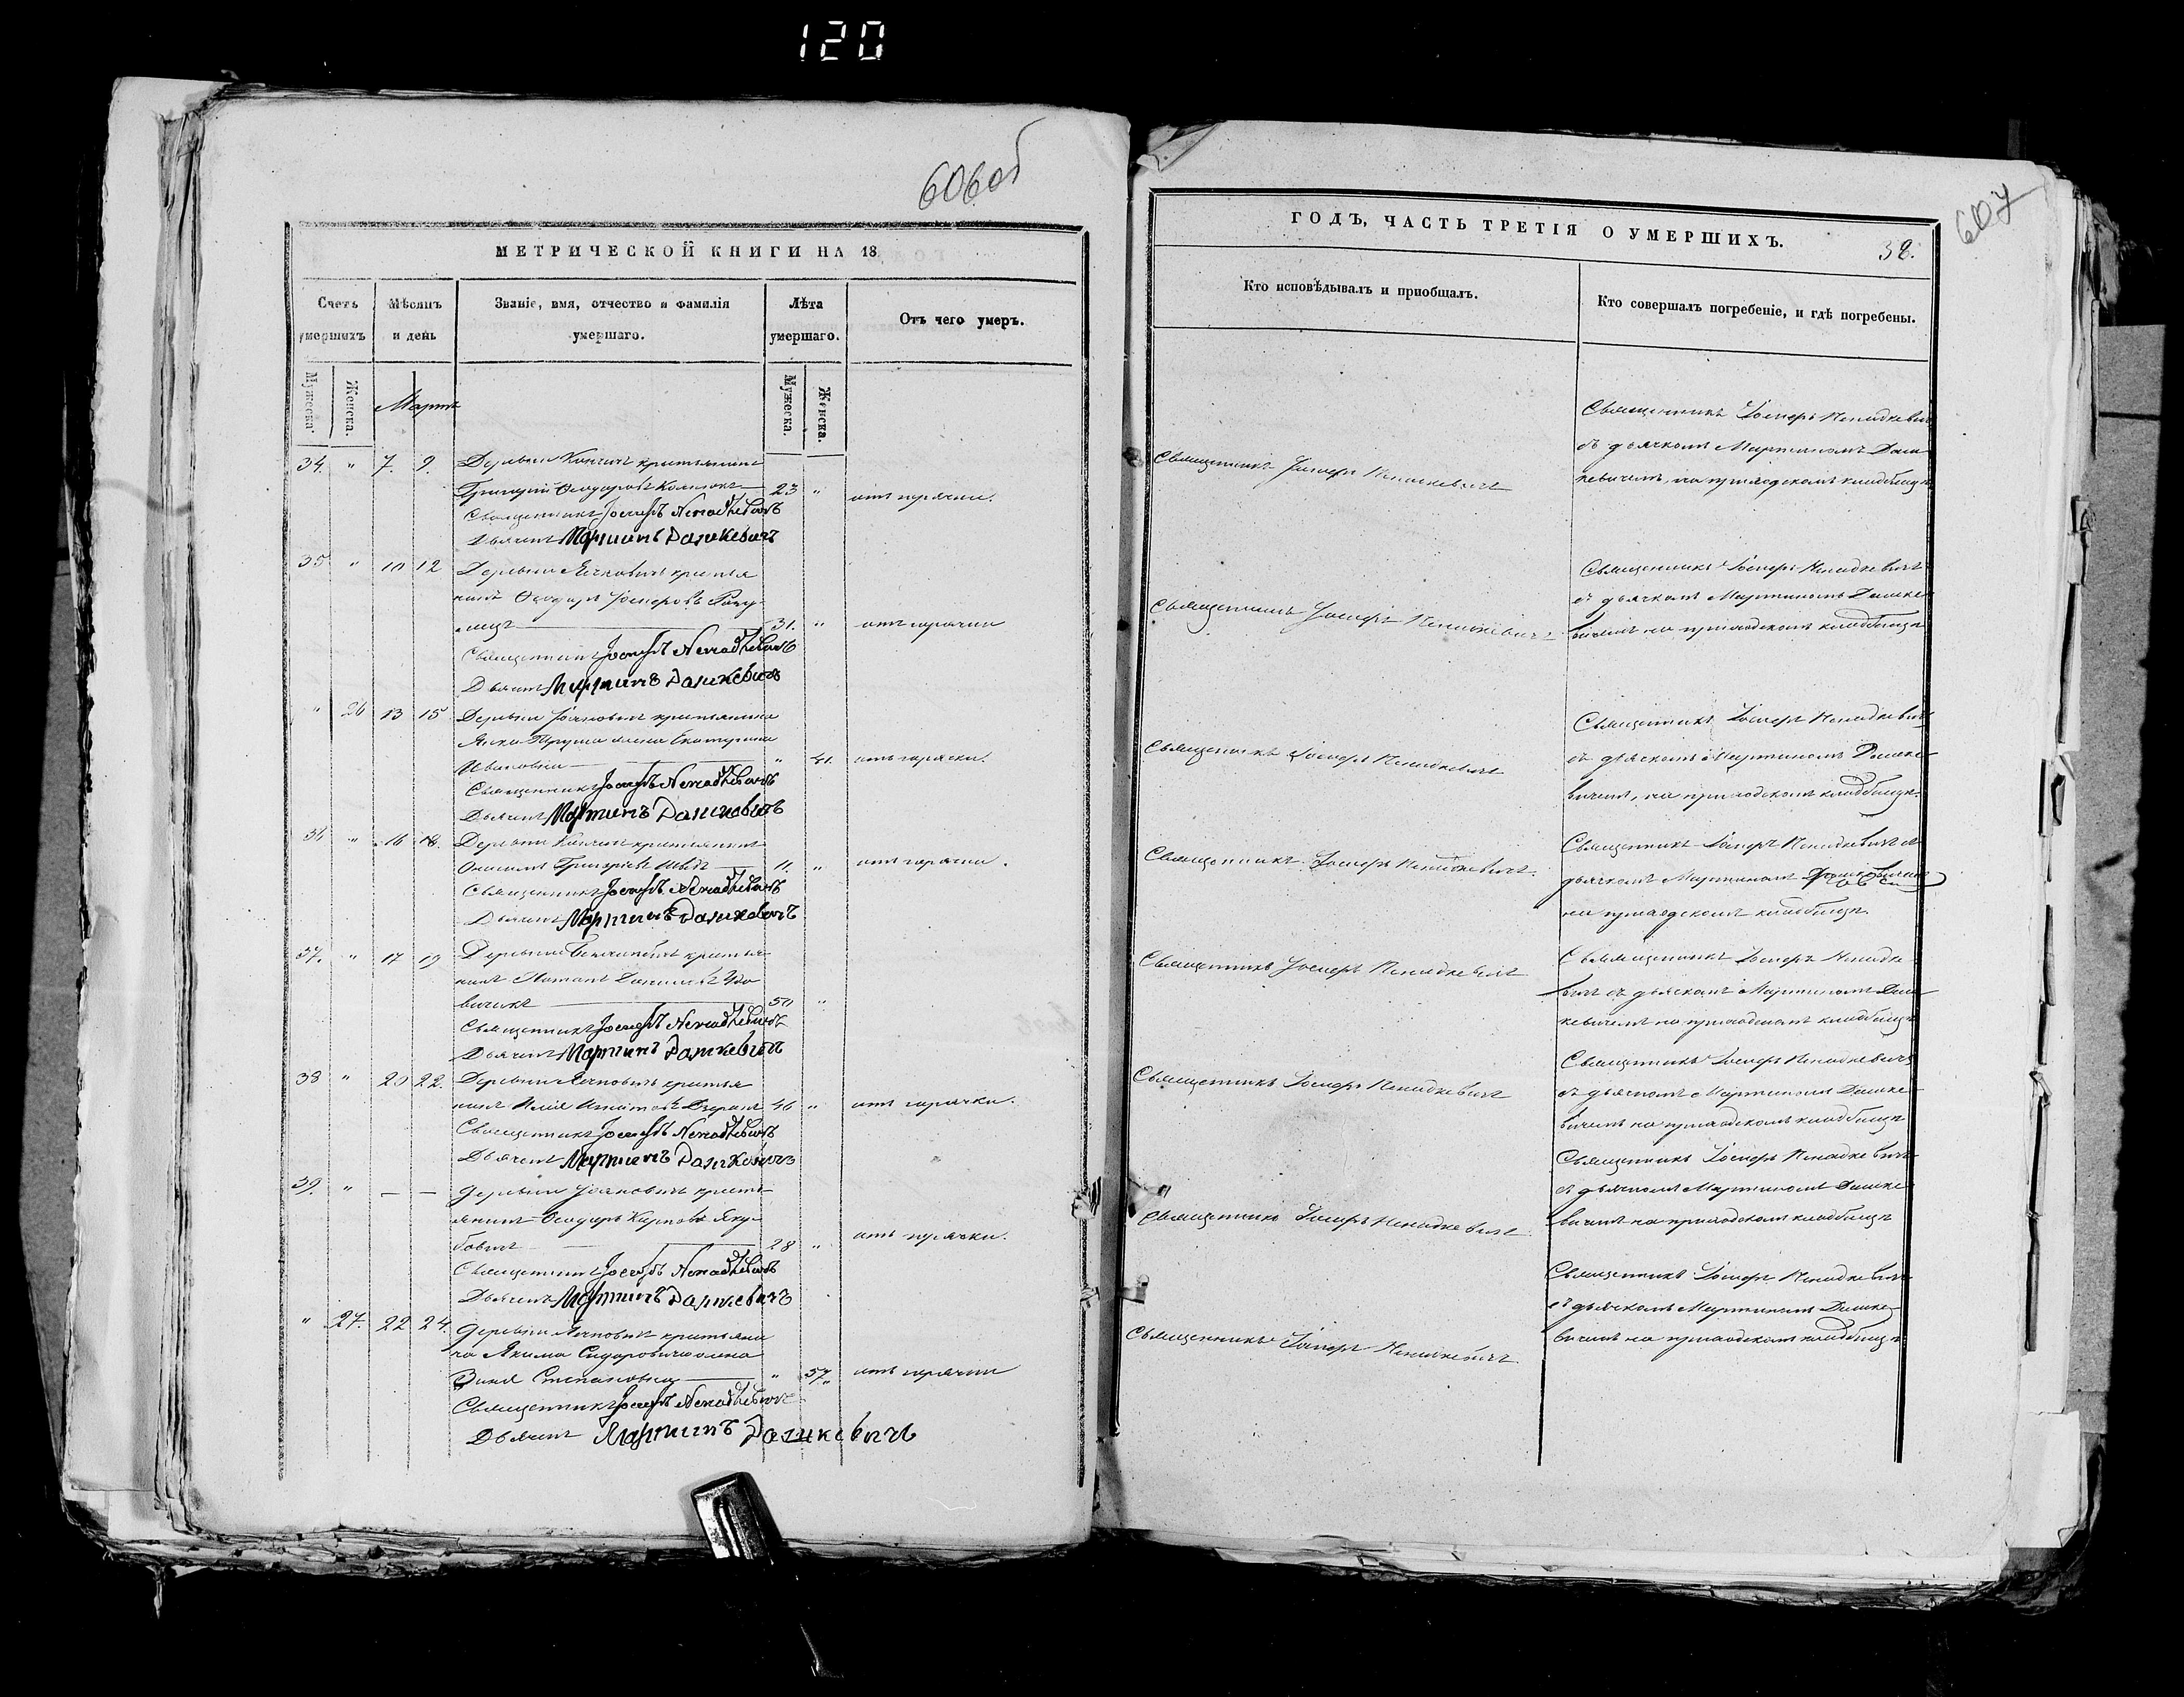 120
606об
МЕТРИЧЕСКОЙ КНИГИ НА 18
Счетъ умершихъ
Мѣсяцъ и день
Званіе, имя, отчество и фамилія умершаго.
Лѣта умершаго.
Отъ чего умеръ.
Мужеска.
Женска.
Мартъ
Мужеска.
Женска.
34. " 7. 9. Деревни крестьянинъ
Григорій Ѳеодоровъ 23 " отъ горячки.
Священникъ Іосифъ Ненадкевичъ
Дьячекъ Мартинъ Дашкевичъ
35 " 10 12 Деревни крестья
нинъ Ѳеодоръ Іосифовъ
31. " отъ горячки
Священникъ Іосифъ Ненадкевичъ
Дьячекъ Мартинъ Дашкевичъ
" 26 13 15 Деревни крестьянина
жена Екатерина
Ивановна " 41. отъ горячки.
Священникъ Іосифъ Ненадкевичъ
Дьячекъ Мартинъ Дашкевичъ
36 " 16 18. Деревни крестьянинъ
Григорьевъ 11. " отъ горячки.
Священникъ Іосифъ Ненадкевичъ
Дьячекъ Мартинъ Дашкевичъ
37. " 17 19 Деревни крестья
нинъ
50 "
Священникъ Іосифъ Ненадкевичъ
Дьячекъ Мартинъ Дашкевичъ
38 " 20 22. Деревни крестья
нинъ Илія Игнатовъ 46 " отъ горячки.
Священникъ Іосифъ Ненадкевичъ
Дьячекъ Мартинъ Дашкевичъ
39. " — — Деревни кресть
янинъ Ѳеодоръ Карповъ Яку
бовичъ 28 " отъ горячки.
Священникъ Іосифъ Ненадкевичъ
Дьячекъ Мартинъ Дашкевичъ
" 27. 22 24. Деревни крестьяни
на Якима Сидоровича жена
Степановна " 57 отъ горячки
Священникъ Іосифъ Ненадкевичъ
Дьячекъ Мартинъ Дашкевичъ
607
ГОДЪ, ЧАСТЬ ТРЕТІЯ О УМЕРШИХЪ.
38.
Кто исповѣдывалъ и пріобщалъ.
Кто совершалъ погребеніе, и гдѣ погребены.
Священникъ Іосифъ Ненадкевичъ
Священникъ Іосифъ Ненадкевичъ
съ дьячкомъ Мартиномъ Даш
кевичемъ, на приходскомъ кладбищѣ
Священникъ Іосифъ Ненадкевичъ
Священникъ Іосифъ Ненадкевичъ
съ дьячкомъ Мартиномъ Дашке
вичемъ на приходскомъ кладбищѣ
Священникъ Іосифъ Ненадкевичъ
Священникъ Іосифъ Ненадкевичъ
съ дьячкомъ Мартиномъ Дашке
вичемъ, на приходскомъ кладбищѣ.
Священникъ Іосифъ Ненадкевичъ.
Священникъ Іосифъ Ненадкевичъ съ
дьячкомъ Мартиномъ Дашкевичемъ
на приходскомъ кладбищѣ.
Священникъ Іосифъ Ненадкевичъ
Священникъ Іосифъ Ненадке
вичъ съ дьячкомъ Мартиномъ Даш
кевичемъ на приходскомъ кладбищѣ
Священникъ Іосифъ Ненадкевичъ
Священникъ Іосифъ Ненадкевичъ
съ дьячкомъ Мартиномъ Дашке
вичемъ на приходскомъ кладбищѣ
Священникъ Іосифъ Ненадкевичъ
Священникъ Іосифъ Ненадкевичъ
съ дьячкомъ Мартиномъ Дашке
вичемъ на приходскомъ кладбищѣ
Священникъ Іосифъ Ненадкевичъ
Священникъ Іосифъ Ненадкевичъ
съ дьячкомъ Мартиномъ Дашке
вичемъ на приходскомъ кладбищѣ